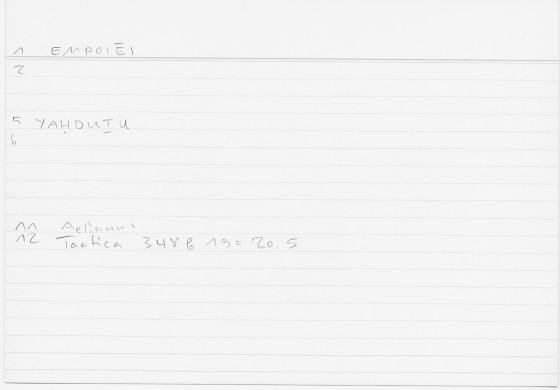 1 EMPOIĒI
2
5 YAḤDUṮU
6
11 Aelianus
12 Tactica 348 B 19 = 20.5